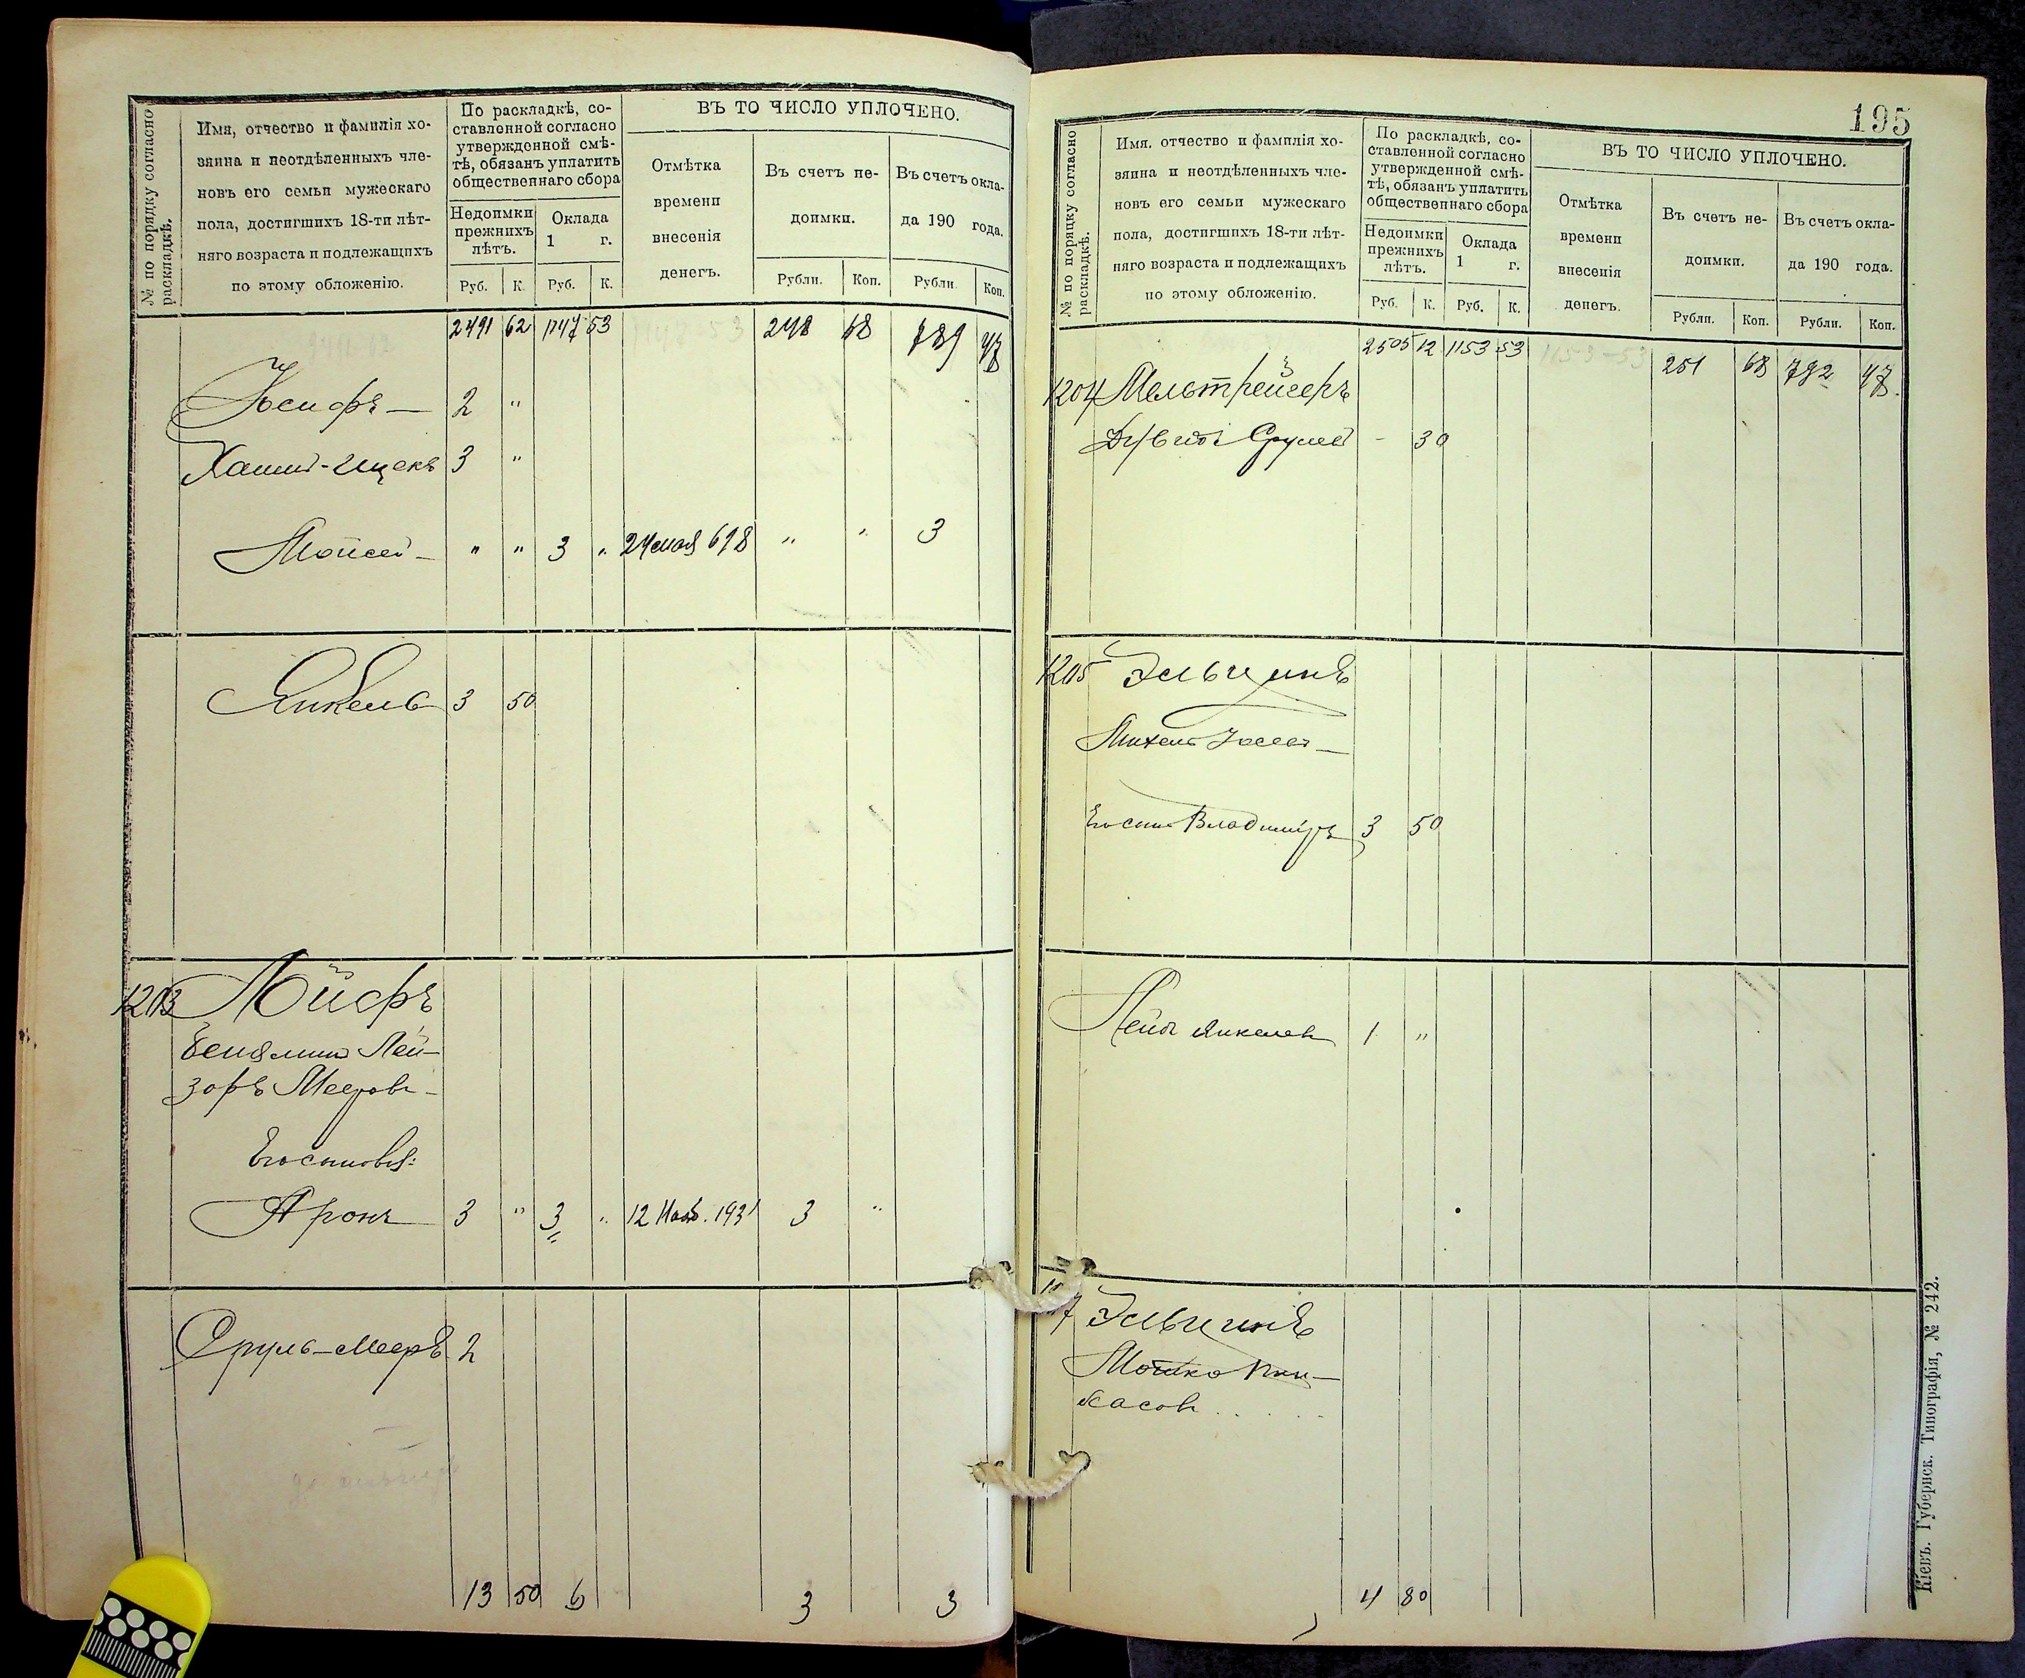 № по порядку согласно раскладкѣ.
Имя, отчество и фамилія хо-
зяина и неотдѣленныхъ чле-
новъ его семьи мужескаго
пола, достигшихъ 18-ти лѣт-
няго возраста и подлежащихъ
по этому обложенію.
По раскладкѣ, со-
ставленной согласно
утвержденной смѣ-
тѣ, обязанъ уплатить
общественнаго сбора
Недоимки
прежнихъ
лѣтъ.
Оклада
1 г.
Руб. К. Руб. К.
ВЪ ТО ЧИСЛО УПЛОЧЕНО.
Отмѣтка
времени
внесенія
денегъ.
Въ счетъ не-
доимки.
Въ счетъ окла-
да 190 года.
Рубли. Коп. Рубли Коп.
2491 62 1147 53 248 68 789 47
Іосифъ — 2 "
Хаимъ-Ицекъ 3 "
Мойсей — " " 3 " 24 мая " " 3
Янкель 3 50
1203 Лойфъ
Беніяминъ Лей-
зоръ Мееровъ -
Его сыновья:
Аронъ 3 " 3 " 12 Нояб. 3 "
Сруль-Мееръ 2
13 50 6 3 3
195
№ по порядку согласно раскладкѣ.
Имя, отчество и фамилія хо-
зяина и неотдѣленныхъ чле-
новъ его семьи мужескаго
пола, достигшихъ 18-ти лѣт-
няго возраста и подлежащихъ
по этому обложенію.
По раскладкѣ, со-
ставленной согласно
утвержденной смѣ-
тѣ, обязанъ уплатить
общественнаго сбора
Недоимки
прежнихъ
лѣтъ.
Оклада
1 г.
Руб. К. Руб. К.
ВЪ ТО ЧИСЛО УПЛОЧЕНО.
Отмѣтка
времени
внесенія
денегъ.
Въ счетъ не-
доимки.
Въ счетъ окла-
да 190 года.
Рубли. Коп. Рубли. Коп.
2505 12 1153 53 1153-53 251 68 792 47
1204 Мельтрейгеръ
Сруле - 30
1205 Эльцинъ
Михель
Его сынъ Владиміръ 3 50
Лейб Янкелев 1 "
Эльцинъ
Мошко Пин-
хасовъ
4 80
Кіевъ. Губернск. Типографія, № 242.